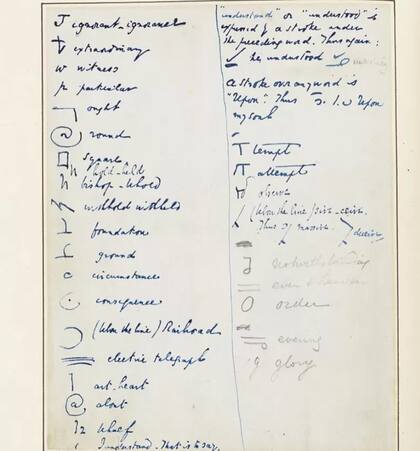 ignorant - ignorance
extraordinary
w witness
particular
ought
round
Square
hold - held
bishop -
withhold withheld
foundation
ground
c circumstance
consequence
(below the line) Railroad
electric telegraph
art - heart
about
I understand. That is to say,
"understand" or "understood" is
expressed by a stroke under
the preceding word. Thus again:
he understood
a stroke over any word is
"Upon". Thus Upon
my soul
tempt
attempt
observe
(below the line) sive - ceive.
Thus receive. deceive
notwithstanding
order
evening
glory